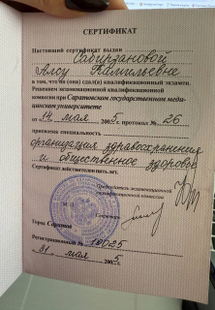 СЕРТИФИКАТ
Настоящий сертификат выдан
Сабирзановой
Алсу Камильевне
в том, что он (она) сдал(а) квалификационный экзамен.
Решением экзаменационной квалификационной
комиссии при Саратовском государственном меди-
цинском университете
от 14 мая 2005 г. протокол № 26
присвоена специальность
организация здравоохранения
и общественное здоровье
Сертификат действителен пять лет.
Председатель экзаменационной
квалификационной комиссии
Секретарь
Город Саратов
Регистрационный № 10025
31 мая 2005г.